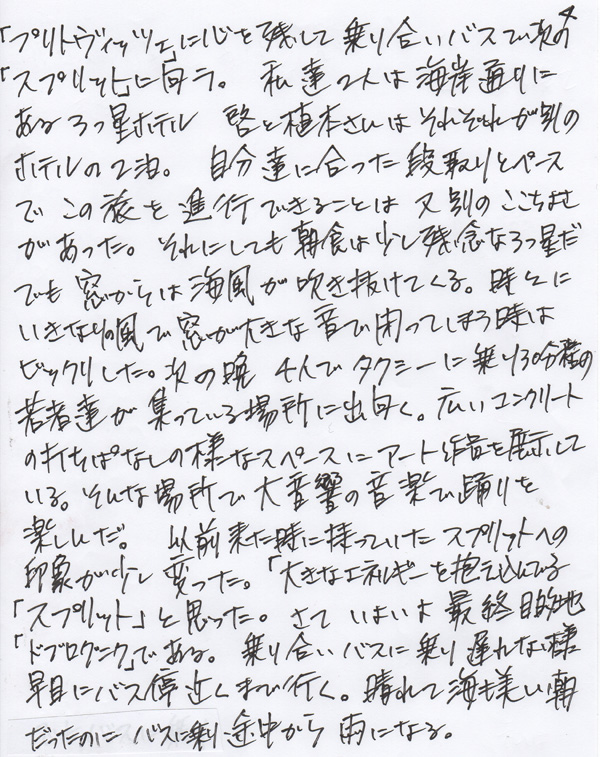 4
「プリトヴィッツェ」に心を残して 乗り合いバスで次の
「スプリット」に向う。 私達2人は海岸通りに
ある3つ星ホテル 啓と植本さんは それぞれが別の
ホテルの2泊。 自分達に合った段取りとペース
で この旅を進行できることは 又別のここちよさ
があった。それにしても朝食は少し残念な3つ星だ
でも窓からは海風が吹き抜けてくる。時々に
いきなりの風で窓が大きな音で閉ってしまう時は
ビックリした。次の晩 4人でタクシーに乗り30分程の
若者達が集っている場所に出向く。広いコンクリート
の打ちぱなしの様なスペースにアート作品を展示して
いる。そんな場所で大音響の音楽で踊りを
楽しんだ。 以前来た時に持っていたスプリットへの
印象が少し変った。「大きなエネルギーを抱え込んでる
「スプリット」と思った。さて いよいよ最終目的地
「ドブログニク」である。 乗り合いバスに乗り遅れない様
早目にバス停近くまで行く。晴れて海も美しい朝
だったのに バスに乗り途中から 雨になる。